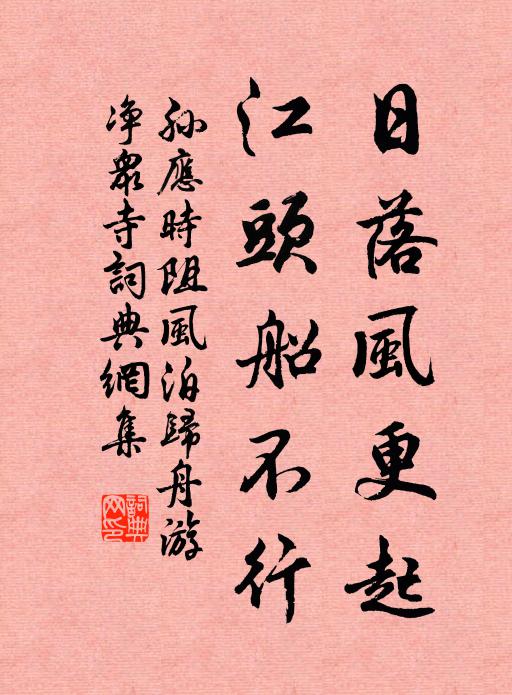 日落風更起
江頭船不行
孫應時阻風泊歸舟游
净衆寺詞典網集
詞典网印